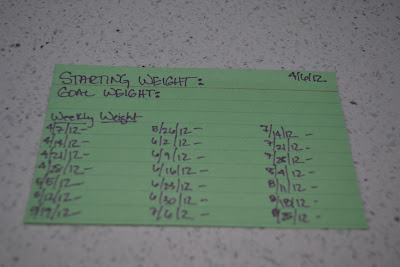 4/6/12
STARTING WEIGHT:
GOAL WEIGHT:
Weekly Weight
4/7/12-
4/14/12-
4/21/12-
4/28/12-
5/5/12-
5/12/12-
5/19/12-
5/26/12-
6/2/12-
6/9/12-
6/16/12-
6/23/12-
6/30/12-
7/14/12-
7/21/12-
7/28/12-
8/4/12-
8/11/12-
8/18/12-
8/25/12-